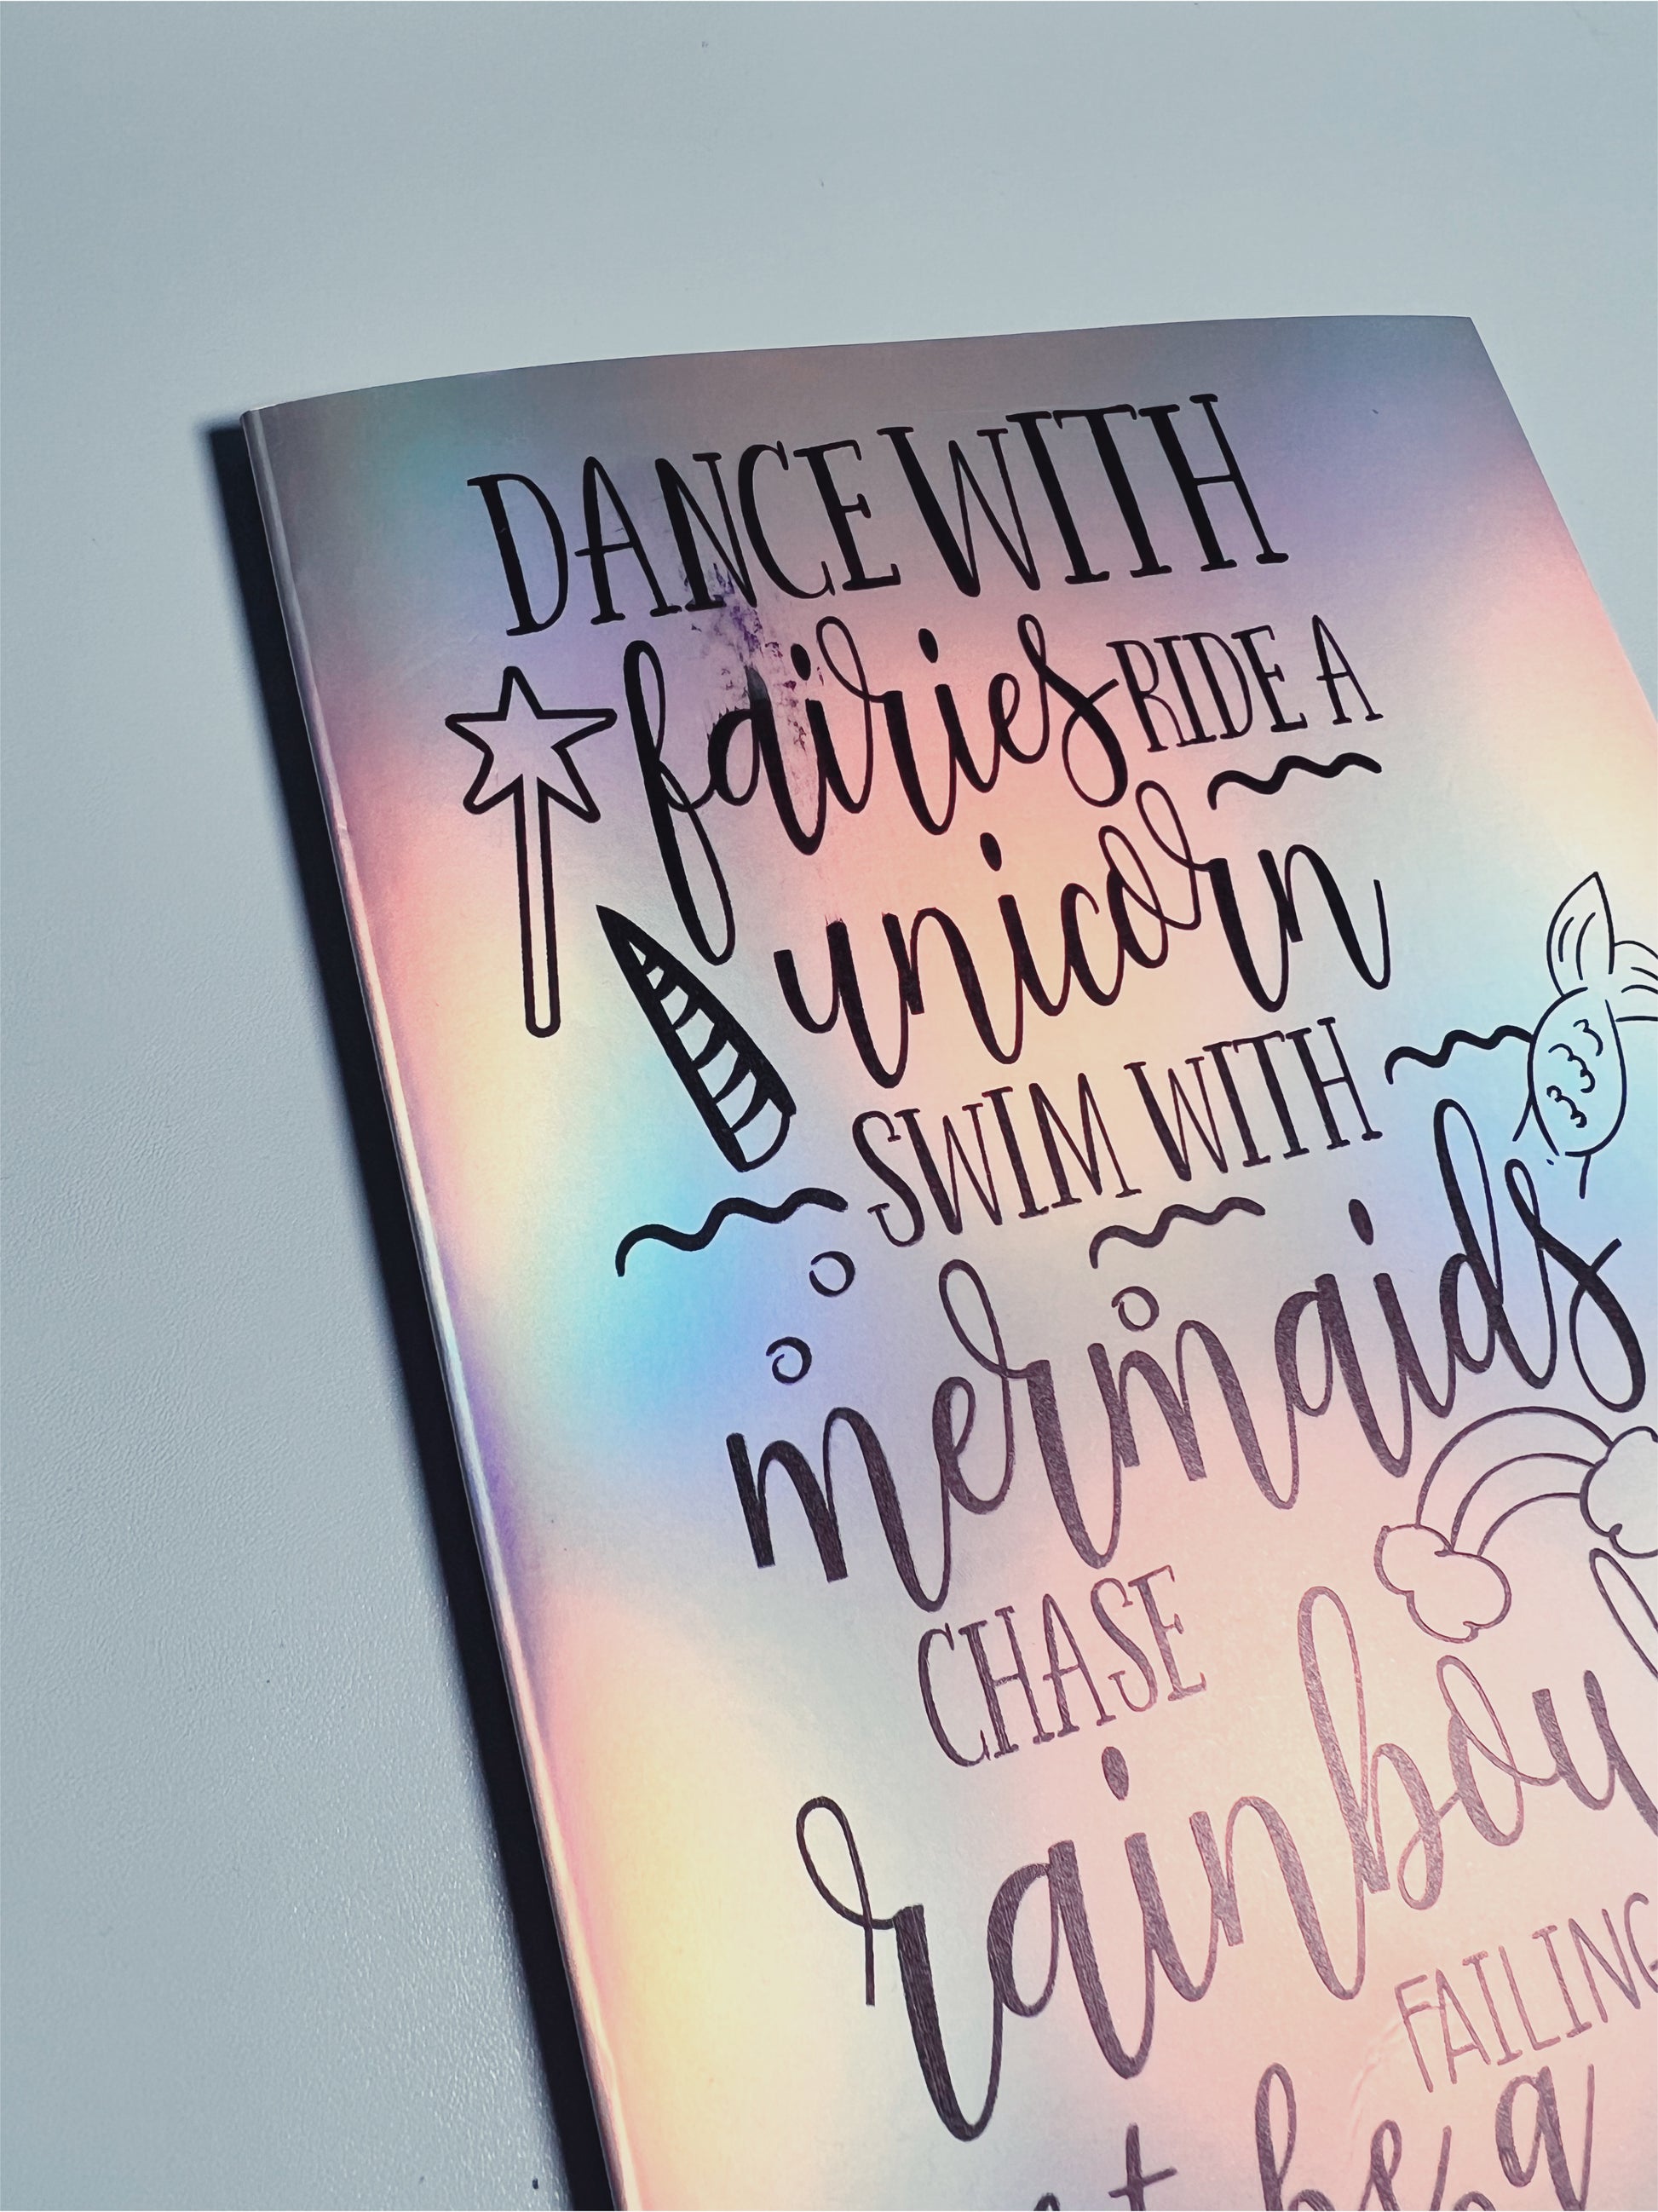 DANCE WITH
fairies RIDE A
unicorn
SWIM WITH
mermaids
CHASE
rainbow
FAILING
be a